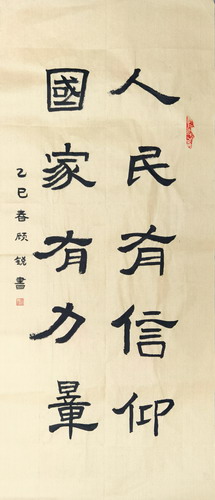 人民有信仰
國家有力量
乙巳春顾锐書